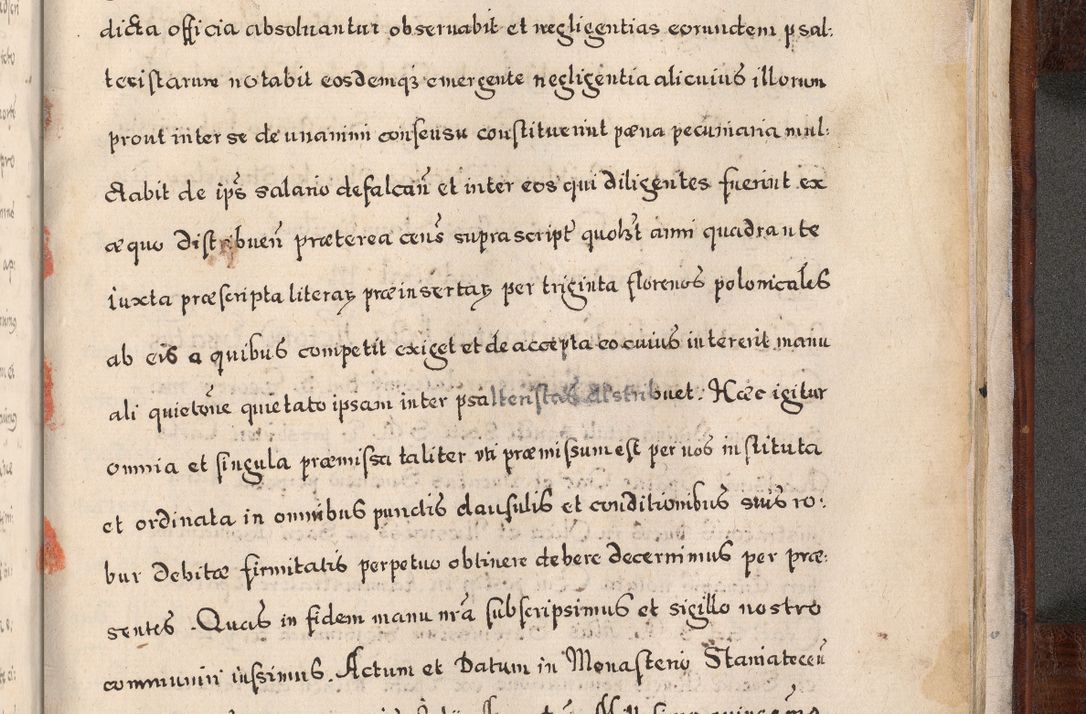 dicta officia absoluantur obseruabit et negligentias eorundem psal:
teristarum notabit eosdemqꝫ emergente negligentia alicuius illorum
prout inter se de unanimi consensu constituerint pœna pecuniaria mul:
ctabit de ip̄s salario defalcan̄ et inter eos qui diligentes fuerint ex
æquo distribuen̄ præterea cens̄ suprascript̄ quolꝫt anni quadrante
iuxta præscripta literaꝝ præinsertaꝝ per triginta florenos polonicales
ab eis a quibus competit exiget et de accepta eo cuius intererit manu
ali quietōne quietato ipsam inter psalteristas distribuet. Hæc igitur
omnia et singula præmissa taliter vti præmissum est per nos instituta
et ordinata in omnibus punctis clausulis et conditionibus suis ro:
bur debitæ firmitatis perpetuo obtinere debere decernimus per præ:
sentes. Quas in fidem manu nr̄a subscripsimus et sigillo nostro
communiri iussimus. Actum et Datum in Monasterio Staniatecen̄